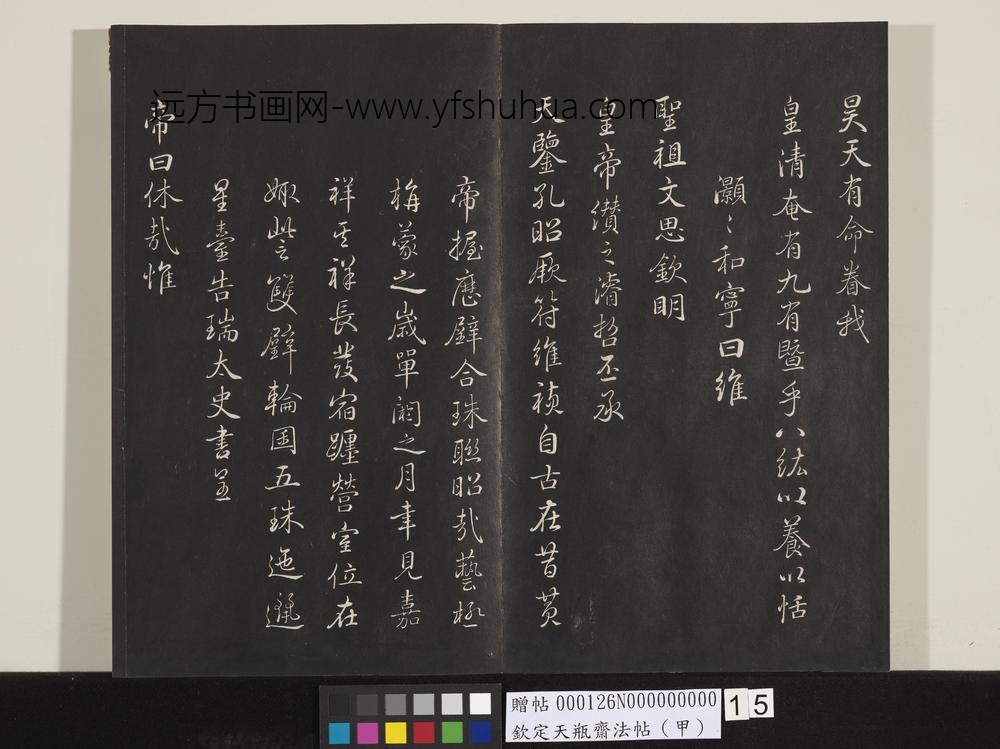 昊天有命眷我
皇清奄有九有暨乎八紘以養以恬
灝〻和寧曰維
聖祖文思欽明
皇帝纘之濬哲丕承
天鑒孔昭厥符維禎自古在昔黃
帝握歷璧合珠聯昭哉藝極
旃蒙之歲單閼之月聿見嘉
祥其祥長發宿躔營室位在
娵訾雙璧輪囷五珠迤邐
星臺告瑞太史書呈
帝曰休哉惟
远方书画网-www.yfshuhua.com
贈帖 000126N000000000
欽定天瓶齋法帖（甲）
15